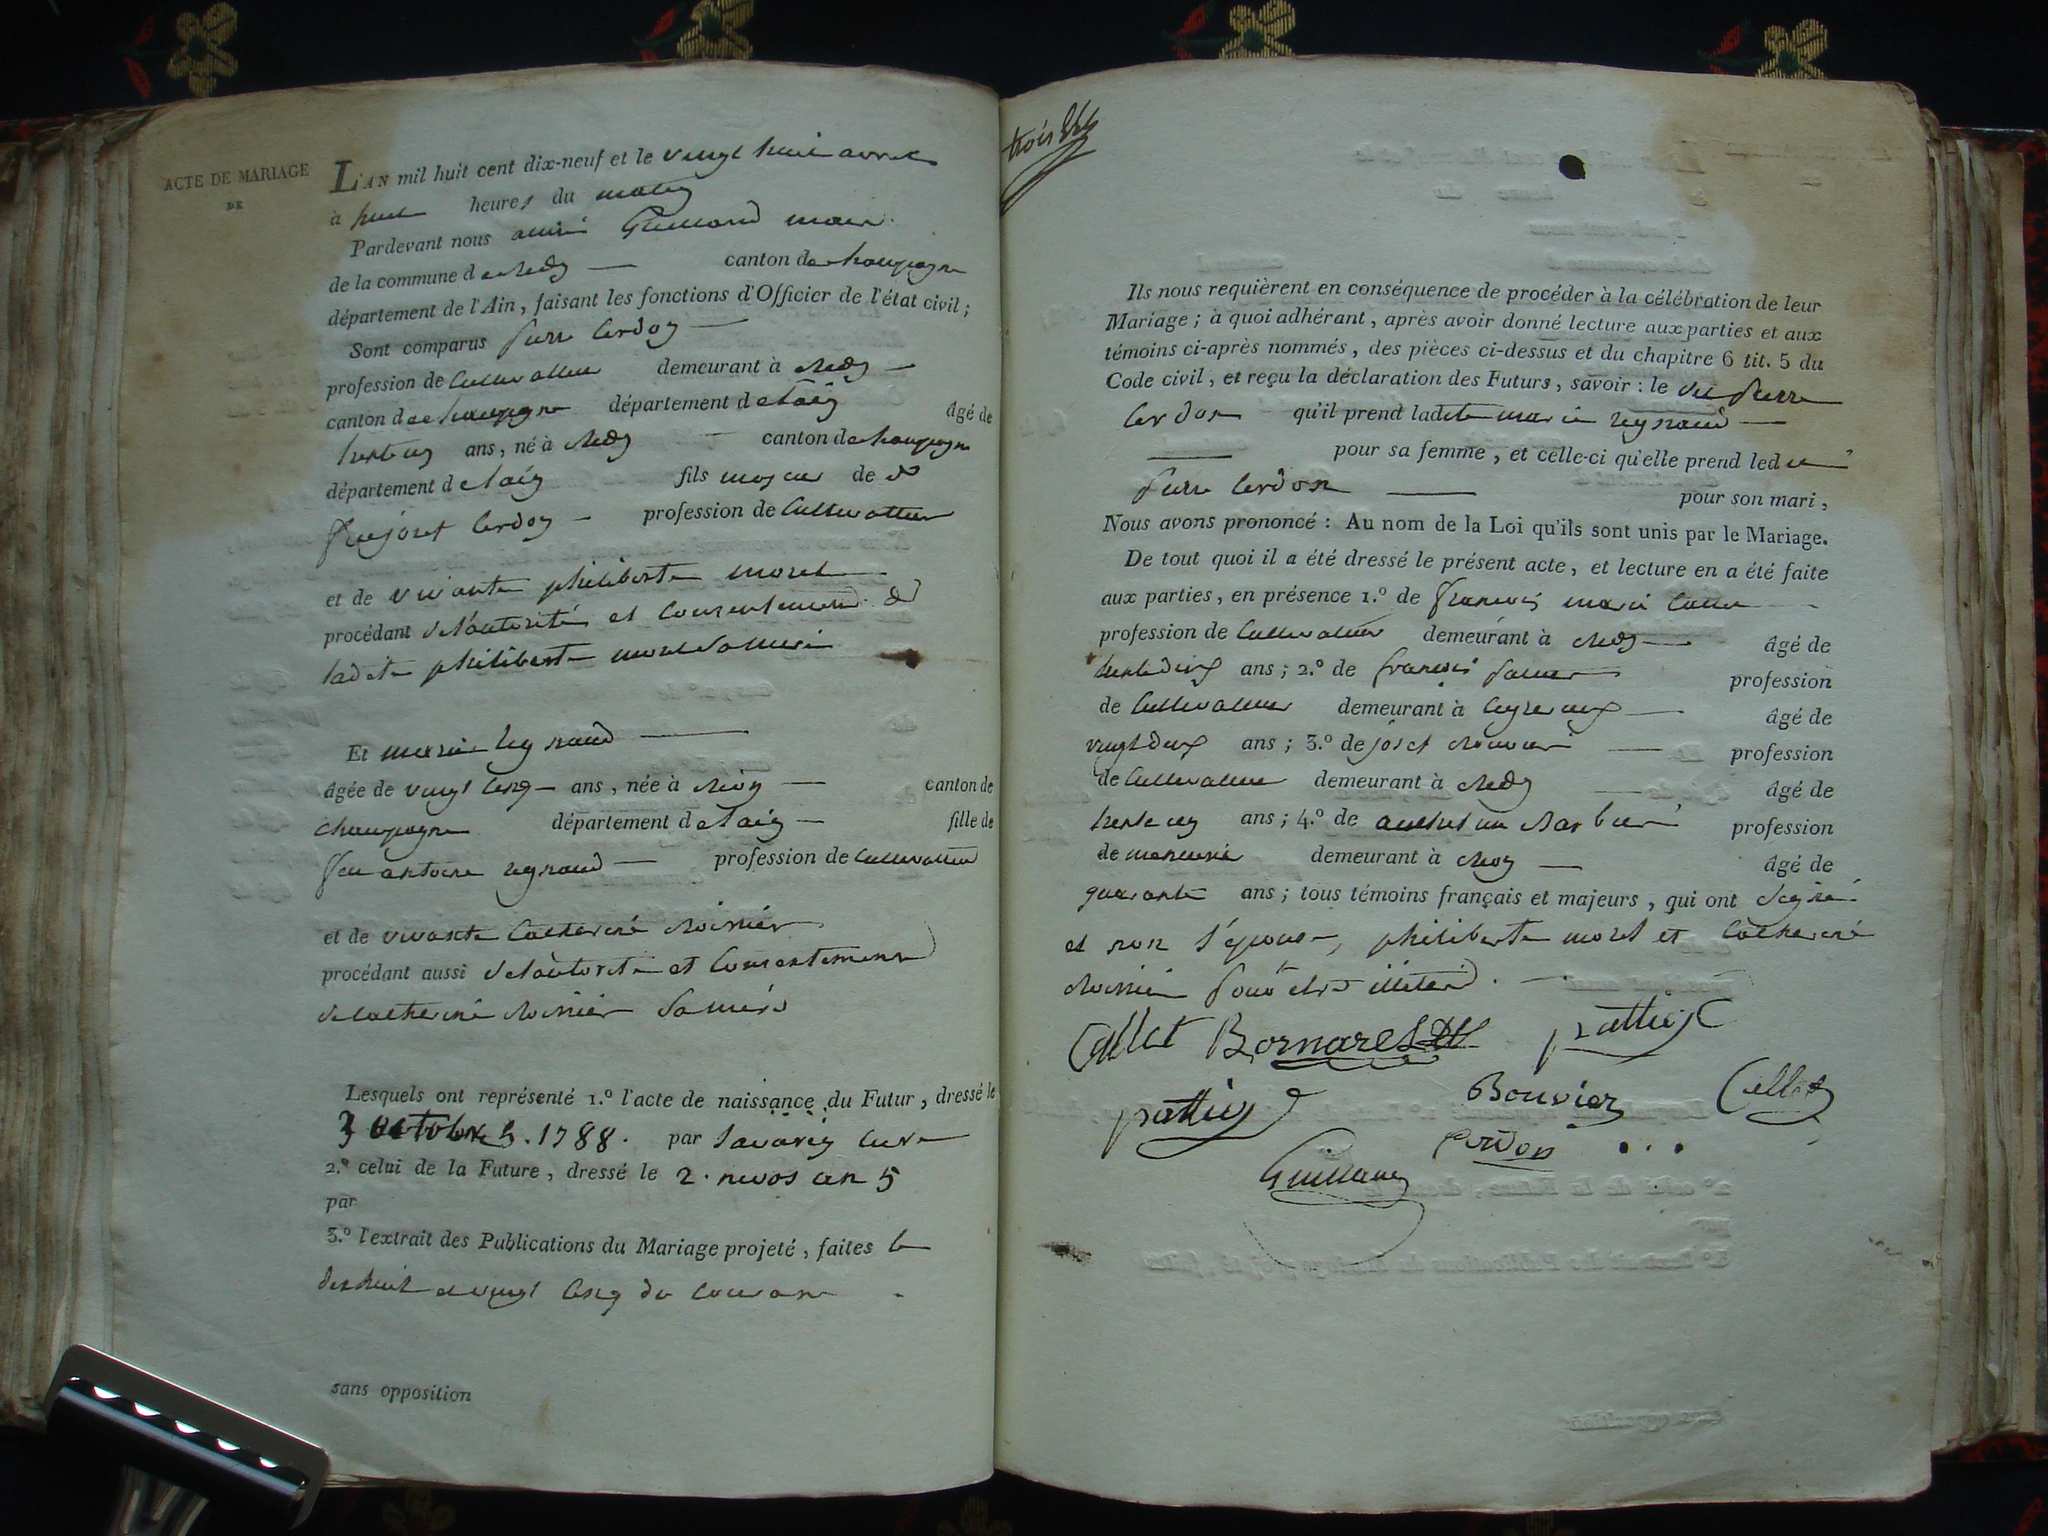 ACTE DE MARIAGE
DE
L'AN mil huit cent dix-neuf et le vingt huit avril
à huit heures du matin
Pardevant nous maire
de la commune de canton de champagne
département de l'Ain, faisant les fonctions d'Officier de l'état civil ;
Sont comparus pierre Cerdon
profession de Cultivatteur demeurant à
canton de champagne département de lain âgé de
trente un ans, né à canton de champagne
département de lain fils majeur de
feu joset Cerdon profession de Cultivatteur
et de vivante philiberte morel
procédant de lautorité et Consentement de
ladite philiberte morel sa mere
Et marie reynaud
âgée de vingt cinq ans, née à canton de
champagne département de lain fille de
feu antoine reynaud profession de Cultivatteur
et de vivante Catherine
procédant aussi de lautorité et Consentement
de Catherine sa mere
Lesquels ont représenté 1.º l'acte de naissance du Futur, dressé le
3 octobre . 1788. par Savarin cure
2.º celui de la Future, dressé le 2. nivos an 5
par
3.º l'extrait des Publications du Mariage projeté, faites le
dix huit et vingt cinq du Courant
sans opposition
trois
Ils nous requièrent en conséquence de procéder à la célébration de leur
Mariage ; à quoi adhérant, après avoir donné lecture aux parties et aux
témoins ci-après nommés, des pièces ci-dessus et du chapitre 6 tit. 5 du
Code civil, et reçu la déclaration des Futurs, savoir : le dit pierre
Cerdon qu'il prend ladite marie reynaud
pour sa femme, et celle-ci qu'elle prend ledit
pierre Cerdon pour son mari,
Nous avons prononcé : Au nom de la Loi qu'ils sont unis par le Mariage.
De tout quoi il a été dressé le présent acte, et lecture en a été faite
aux parties, en présence 1.º de francois marie
profession de Cultivatteur demeurant à âgé de
trente deux ans ; 2.º de francois profession
de Cultivatteur demeurant à âgé de
vingt deux ans ; 3.º de joset profession
de Cultivatteur demeurant à âgé de
trente un ans ; 4.º de profession
de demeurant à âgé de
quarante ans ; tous témoins français et majeurs, qui ont signé
et non l'épouse, philiberte morel et Catherine
pour etre
Callet Bornarel
Bouvier Callet
Cerdon